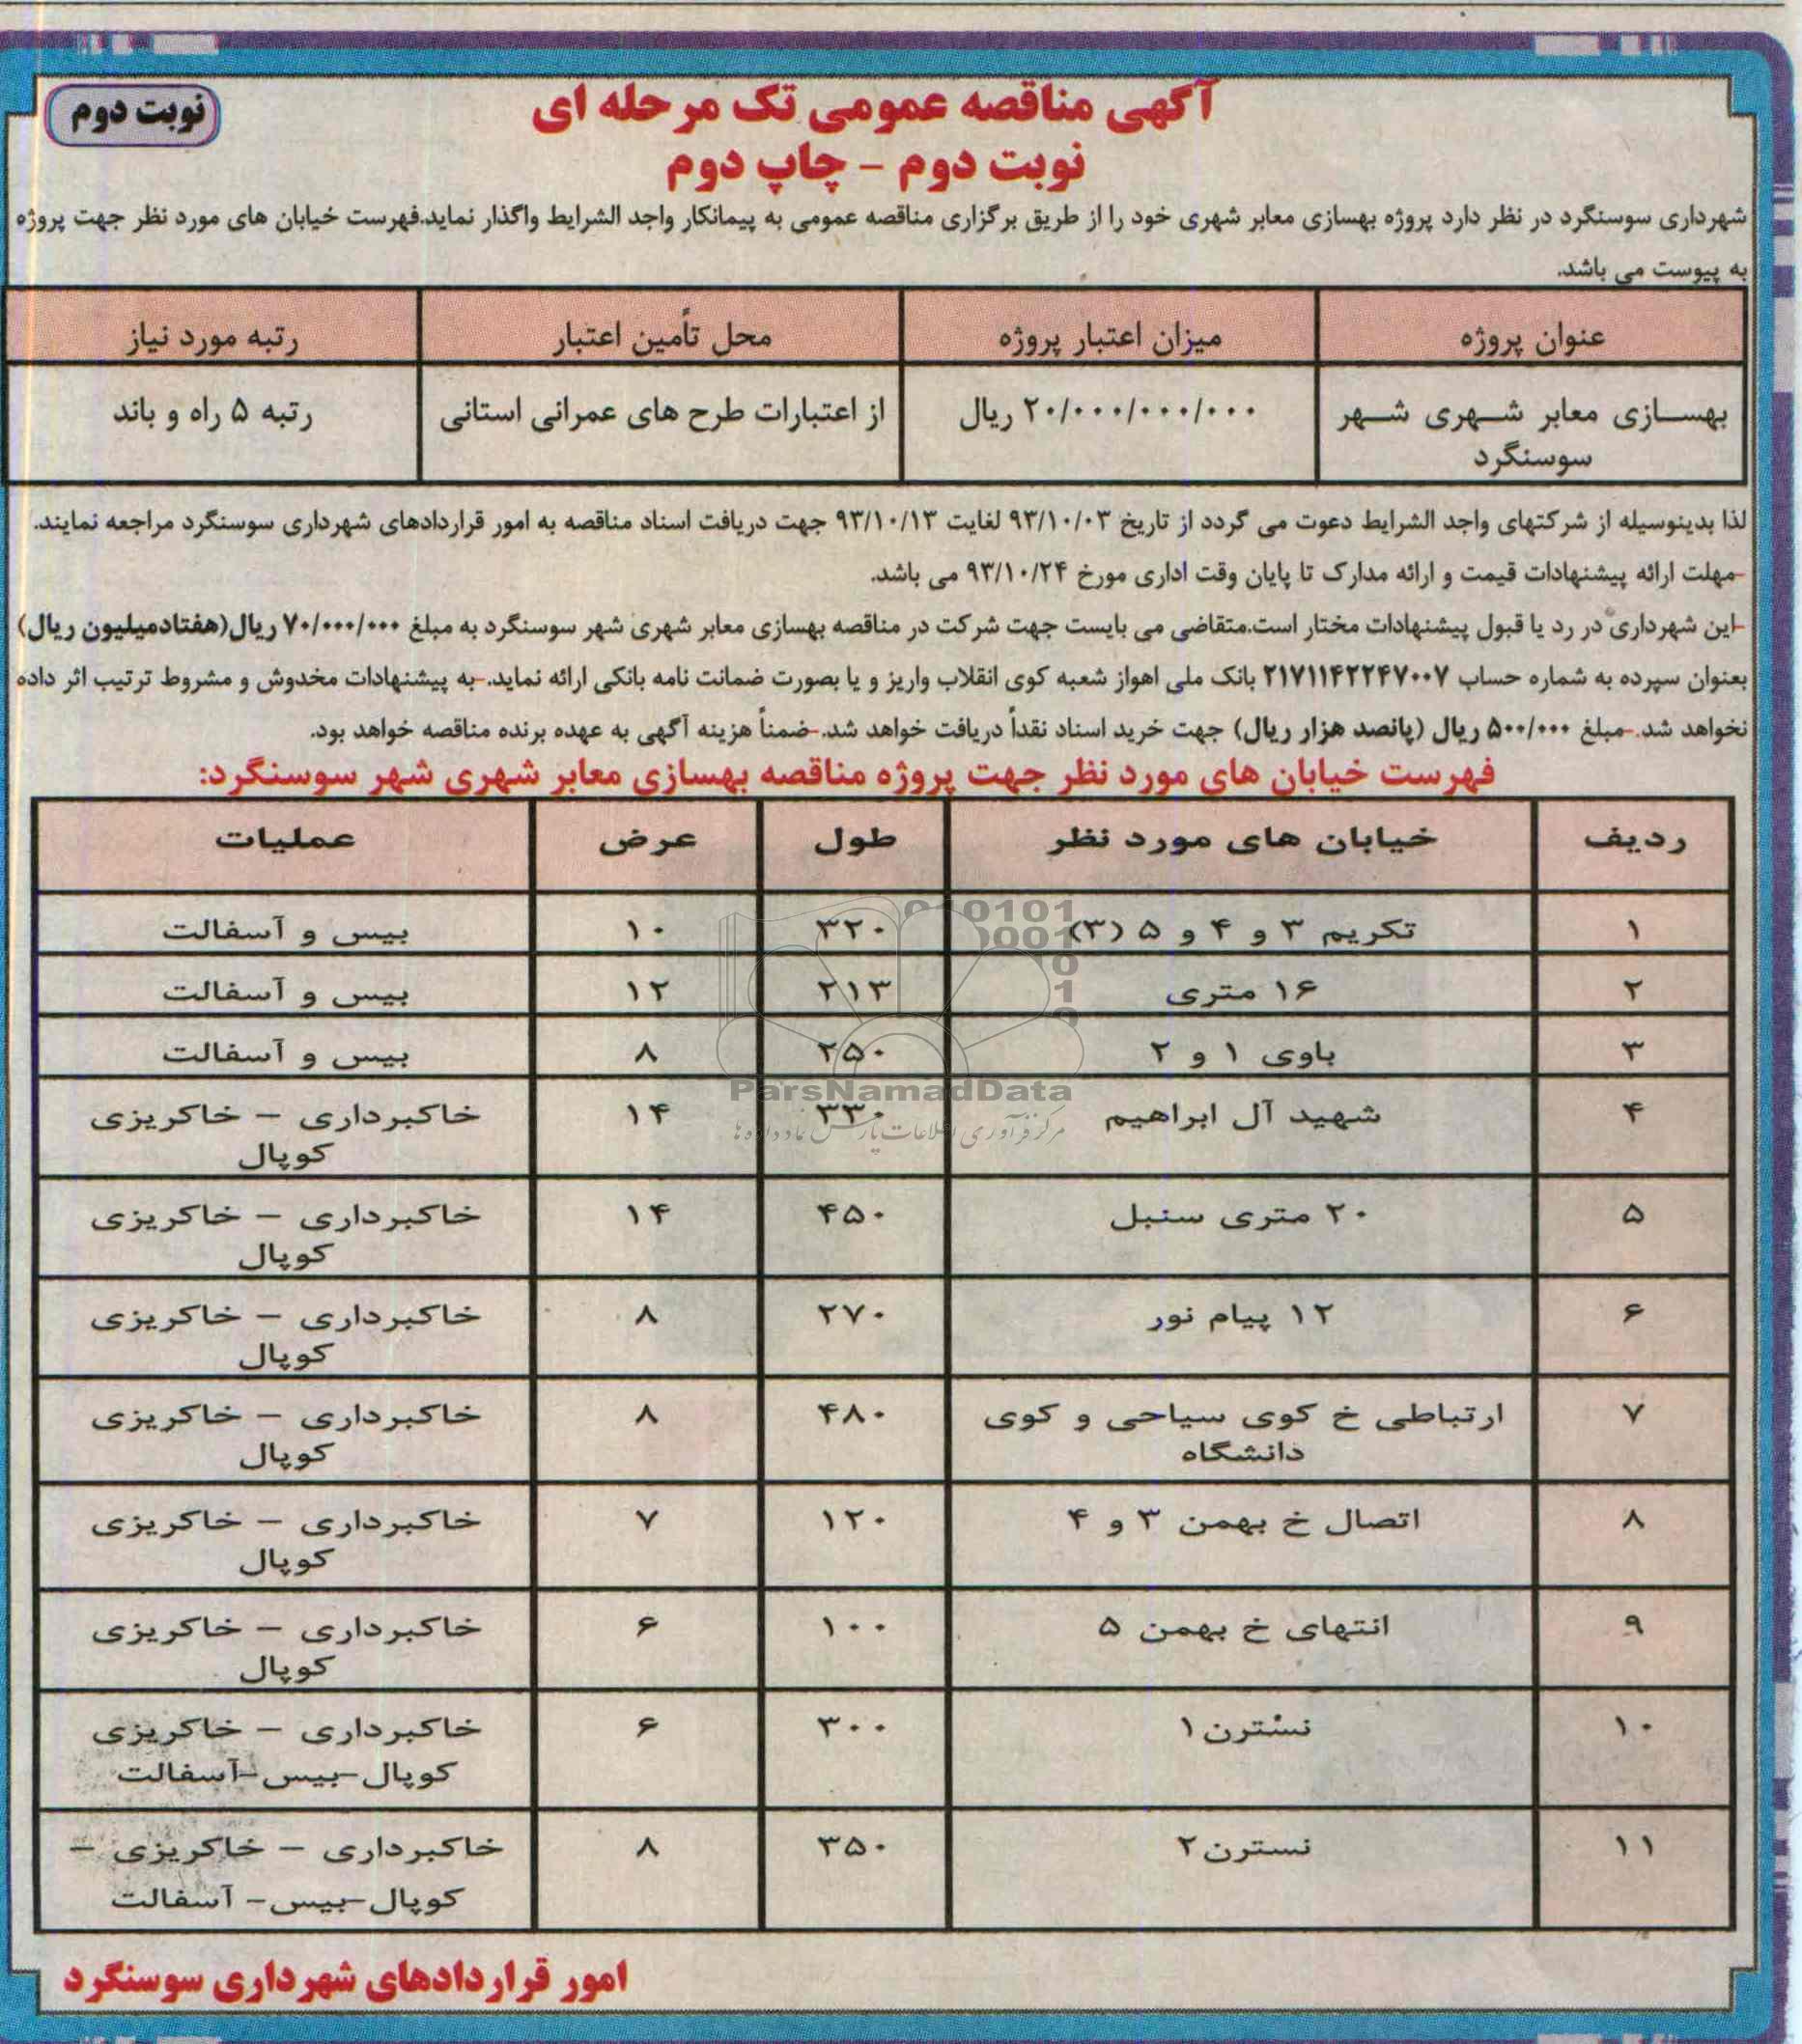 آگهی مناقصه عمومی تک مرحله ای
نوبت دوم
نوبت دوم – چاپ دوم
شهرداری سوسنگرد در نظر دارد پروژه بهسازی معابر شهری خود را از طریق برگزاری مناقصه عمومی به پیمانکار واجد الشرایط واگذار نماید.فهرست خیابان های مورد نظر جهت پروژه
به پیوست می باشد.
عنوان پروژه میزان اعتبار پروژه محل تأمین اعتبار رتبه مورد نیاز
بهسازی معابر شهری شهر ۲۰/۰۰۰/۰۰۰/۰۰۰ ریال از اعتبارات طرح های عمرانی استانی رتبه ۵ راه و باند
سوسنگرد
لذا بدینوسیله از شرکتهای واجد الشرایط دعوت می گردد از تاریخ ۹۳/۱۰/۰۳ لغایت ۹۳/۱۰/۱۳ جهت دریافت اسناد مناقصه به امور قراردادهای شهرداری سوسنگرد مراجعه نمایند.
-مهلت ارائه پیشنهادات قیمت و ارائه مدارک تا پایان وقت اداری مورخ ۹۳/۱۰/۲۴ می باشد.
-این شهرداری در رد یا قبول پیشنهادات مختار است.متقاضی می بایست جهت شرکت در مناقصه بهسازی معابر شهری شهر سوسنگرد به مبلغ ۷۰/۰۰۰/۰۰۰ ریال(هفتادمیلیون ریال)
بعنوان سپرده به شماره حساب ۲۱۷۱۱۴۲۲۴۷۰۰۷ بانک ملی اهواز شعبه کوی انقلاب واریز و یا بصورت ضمانت نامه بانکی ارائه نماید.-به پیشنهادات مخدوش و مشروط ترتیب اثر داده
نخواهد شد.-مبلغ ۵۰۰/۰۰۰ ریال (پانصد هزار ریال) جهت خرید اسناد نقداً دریافت خواهد شد.-ضمناً هزینه آگهی به عهده برنده مناقصه خواهد بود.
فهرست خیابان های مورد نظر جهت پروژه مناقصه بهسازی معابر شهری شهر سوسنگرد:
ردیف خیابان های مورد نظر طول عرض عملیات
۱ تکریم ۳ و ۴ و ۵ (۳) ۳۲۰ ۱۰ بیس و آسفالت
۲ ۱۶ متری ۲۱۳ ۱۲ بیس و آسفالت
۳ باوی ۱ و ۲ ۲۵۰ ۸ بیس و آسفالت
ParsNamadData
۴ شهید آل ابراهیم ۳۳۰ ۱۴ خاکبرداری – خاکریزی
کوپال
مرکز فرآوری اطلاعات پارس نماد داده ها
۵ ۲۰ متری سنبل ۴۵۰ ۱۴ خاکبرداری – خاکریزی
کوپال
۶ ۱۲ پیام نور ۲۷۰ ۸ خاکبرداری – خاکریزی
کوپال
۷ ارتباطی خ کوی سیاحی و کوی ۴۸۰ ۸ خاکبرداری – خاکریزی
دانشگاه کوپال
۸ اتصال خ بهمن ۳ و ۴ ۱۲۰ ۷ خاکبرداری – خاکریزی
کوپال
۹ انتهای خ بهمن ۵ ۱۰۰ ۶ خاکبرداری – خاکریزی
کوپال
۱۰ نسترن۱ ۳۰۰ ۶ خاکبرداری – خاکریزی
کوپال-بیس-آسفالت
۱۱ نسترن۲ ۳۵۰ ۸ خاکبرداری – خاکریزی –
کوپال-بیس- آسفالت
امور قراردادهای شهرداری سوسنگرد